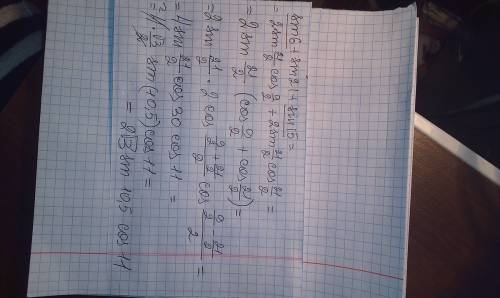 sin6 + sin21 + sin15 =
= 2sin 21/2 cos 9/2 + 2sin 21/2 cos 21/2 =
= 2sin 21/2 (cos 9/2 + cos 21/2) =
= 2sin 21/2 · 2 cos (9/2 + 21/2)/2 cos (9/2 - 21/2)/2 =
= 4sin 21/2 cos 30 cos 11 =
= 4 √3/2 sin(10,5) cos 11 =
= 2√3 sin 10,5 cos 11